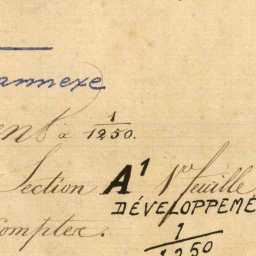 annexe
ent à 1/1250.
Section A¹ 1re feuille
DÉVELOPPEME
Compter.
1/1250